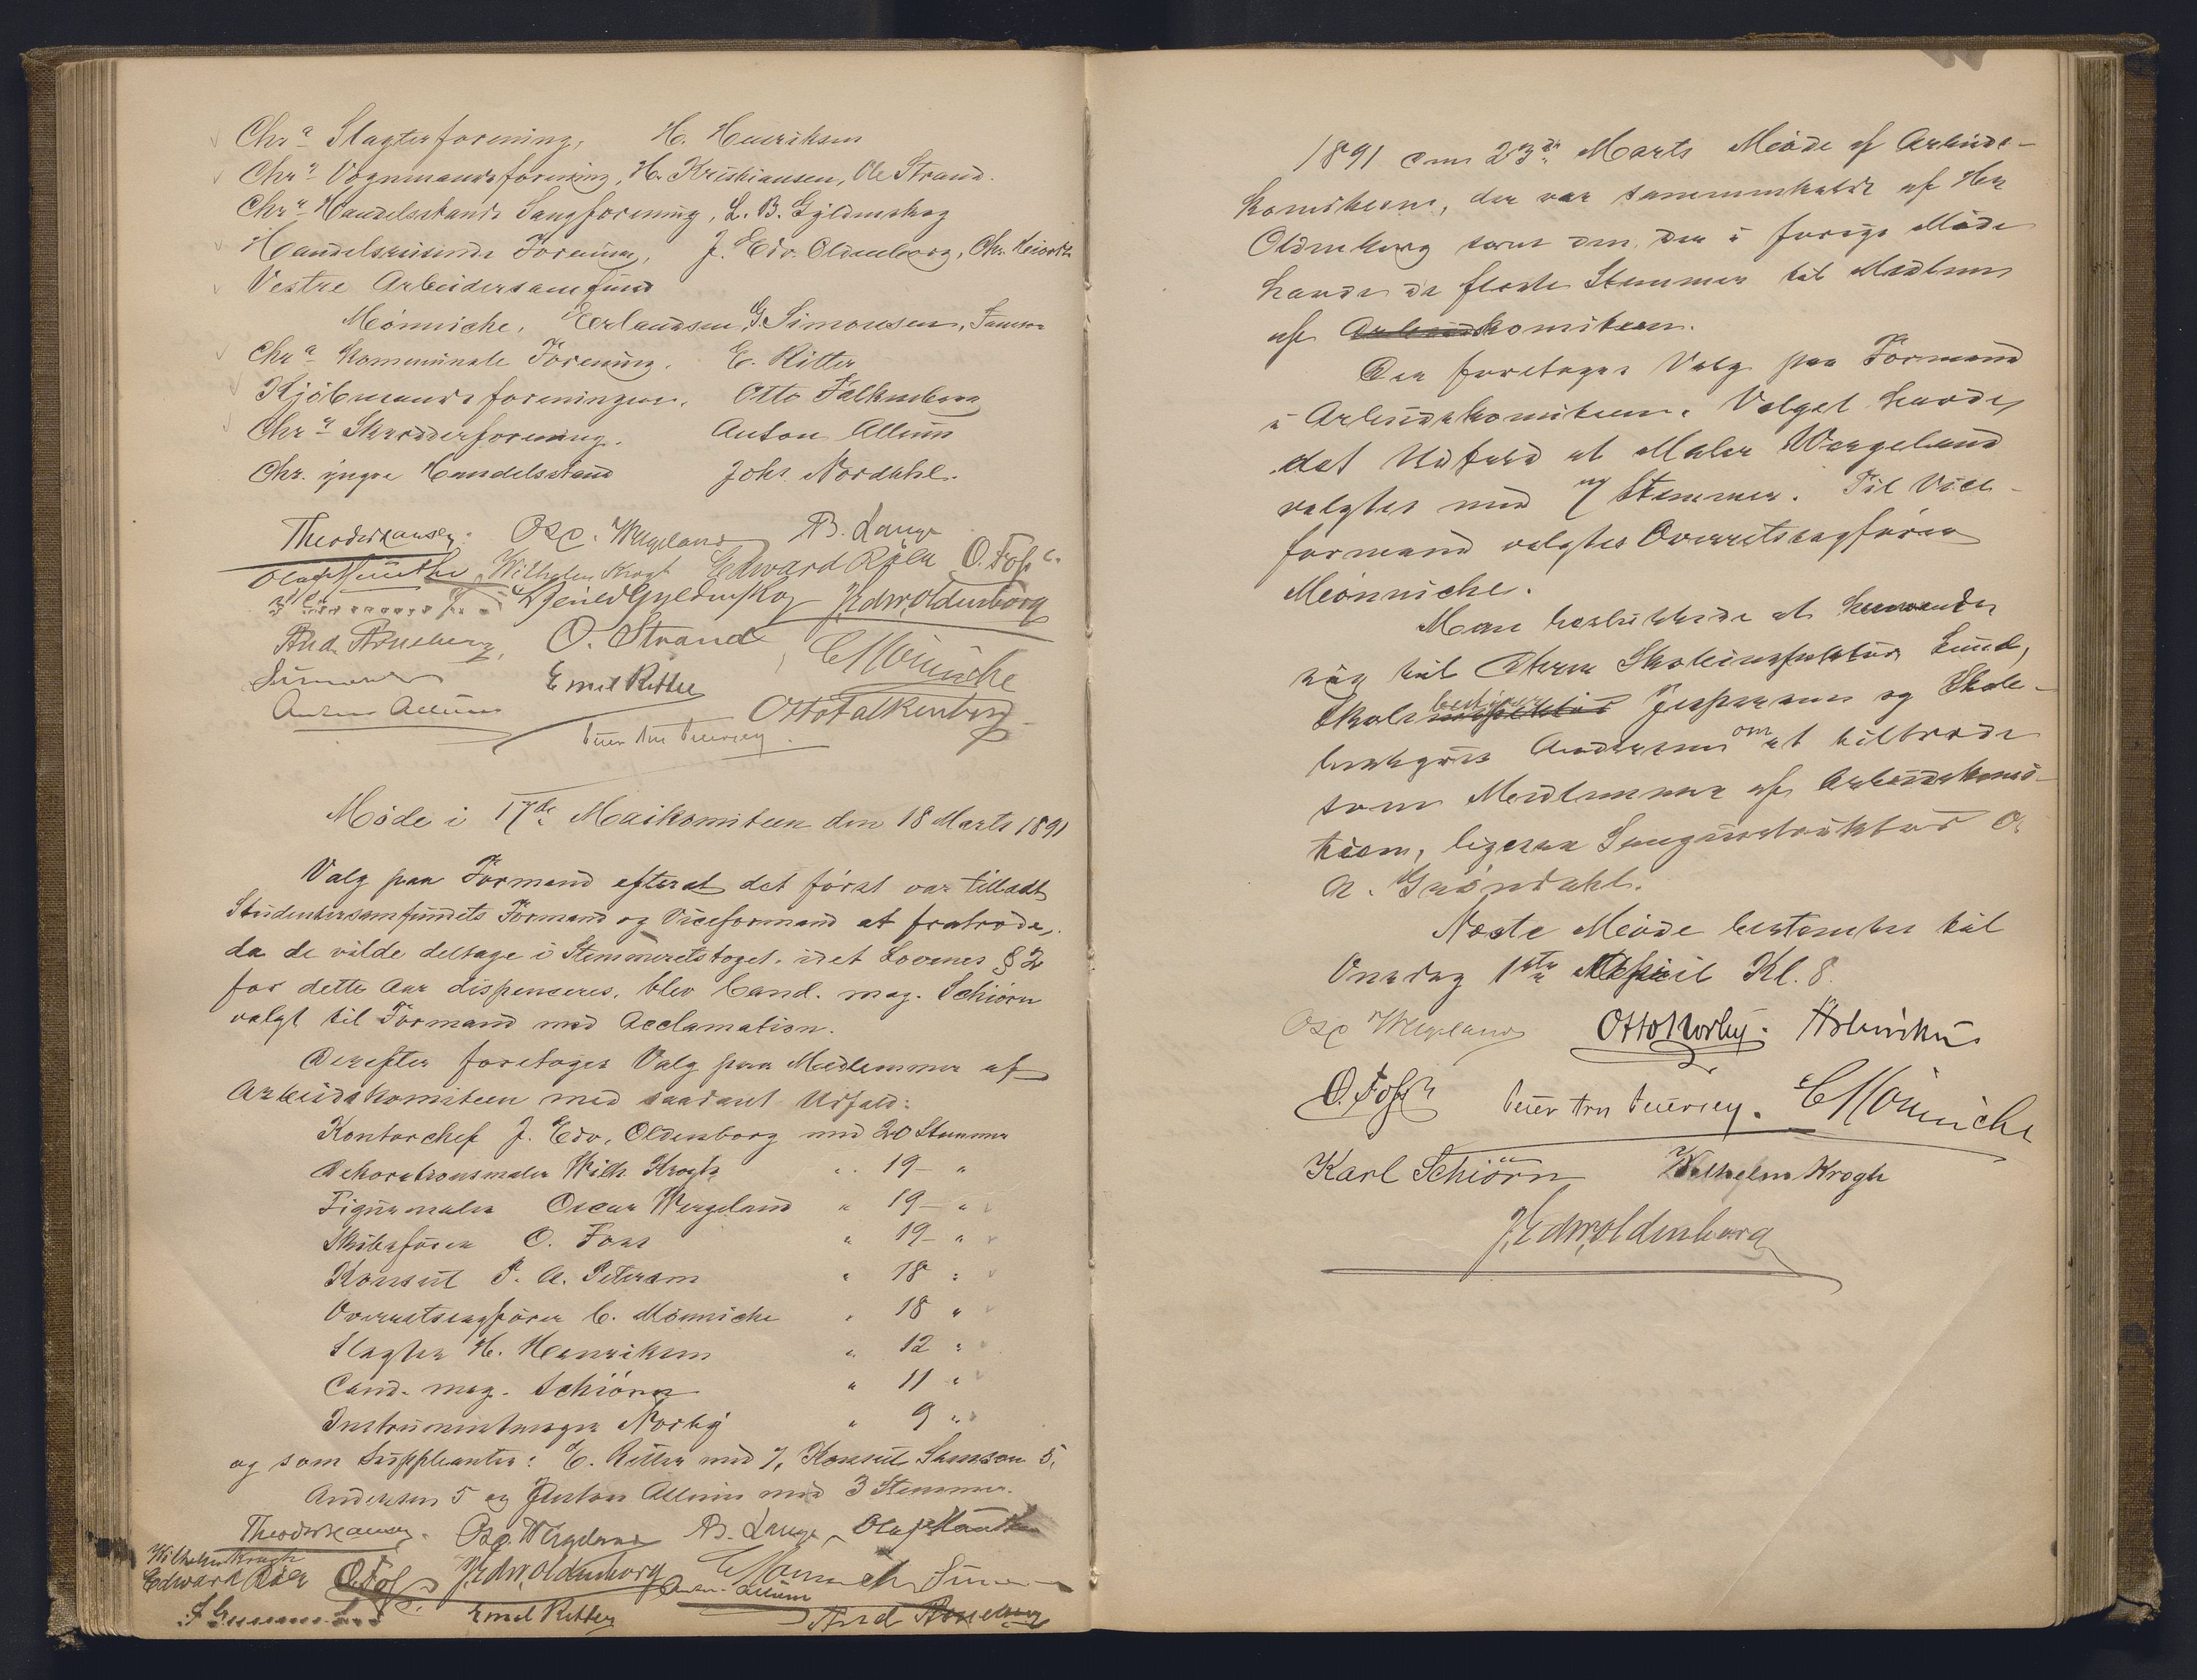 Chra Slagterforening, H. Henriksen
Chra Vognmandsforening, H. Kristiansen, Ole Strand.
Chra Handelsstands Sangforening, L. B. Gyldenskog
Handelsreisende Forening, J. Edv. Oldenborg, Chr.
Vestre Arbeidersamfund
Mönniche, Erlandsen, G. Simonsen, Samson
Chra Kommunale Forening. E. Ritter
Kjöbmandsforeningen. Otto Falkenberg
Chra Skrædderforening. Anton Allum
Chr. yngre Handelsstand Johs. Nordahl.
Theodor Hansen. Osc. Wergeland B. Lange
Olaf Wilhelm Krogh Edward Röer O. Foss
Gyldenskog J. Edw. Oldenborg
And. Arneberg, O. Strand C Mönniche
Simonsen Emil Ritter
Anton Allum Otto Falkenberg
Peter Arn Petersen.
Möde i 17de Maikomiteen den 18 Marts 1891
Valg paa Formand efterat det först var tilladt
Studentersamfundets Formand og Viceformand at fratræde,
da de vilde deltage i Stemmeretstoget, idet Lovenes § 2
for dette Aar dispenceres, blev Cand. mag. Schiörn
valgt til Formand med Acclamation.
Derefter foretoges Valg paa Medlemmer af
Arbeidskomiteen med saadant Udfald:
Kontorchef J. Edv. Oldenborg med 20 Stemmer
Dekorationsmaler Wilh. Krogh " 19 - "
Figurmaler Oscar Wergeland " 19 - "
Skibsförer O. Foss " 19 - "
Konsul P. A. Petersen " 18 "
Overretssagförer C. Mönniche " 18 "
Slagter H. Henriksen " 12 "
Cand. mag. Schiörn " 11 "
Instrumentmager Norby " 9 "
og som Suppleanter: E. Ritter med 7, Konsul Samson 5,
Andersen 5 og Anton Allum med 3 Stemmer.
Theodor Hansen. Osc. Wergeland B. Lange Olaf
Wilhelm Krogh
Edward Röer O. Foss J. Edw. Oldenborg C Mönniche Simonsen
Anton Allum
Emil Ritter And Arneberg
1891 den 23de Marts Möde af Arbeids-
komiteen, der var sammenkaldt af Hr
Oldenborg som den, der i forrige Möde
havde de fleste Stemmer til Medlem
af Arbeidskomiteen.
Der foretoges Valg paa Formand
i Arbeidskomiteen. Valget havde
det Udfald at Maler Wergeland
valgtes med 7 Stemmer. Til Vice-
formand valgtes Overretssagförer
Mönniche.
Man besluttede at henvende
sig til Herrer Skoleinspektör Lund,
Skolebestyrer Jespersen og Skole-
bestyrer Andersen om at tiltræde
som Medlemmer af Arbeidskomi-
teen, ligesaa Sanginstruktör O.
A. Gröndahl.
Næste Möde bestemtes til
Onsdag 1ste April Kl. 8.
Osc Wergeland Otto Norby. H Henriksen
O. Foss Peter Arn Petersen. C Mönniche
Karl Schiörn Wilhelm Krogh
J. Edw. Oldenborg